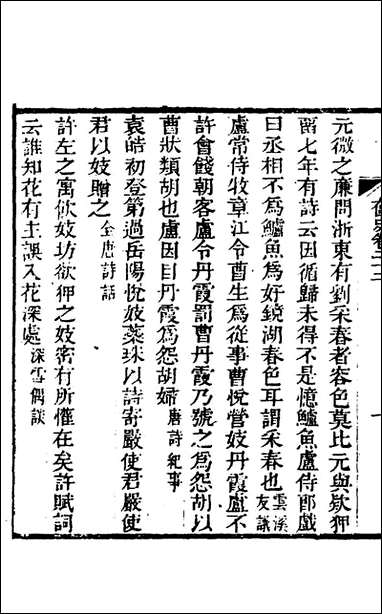 元微之廉問浙東有劉采春者容色莫比元與歘狎
畱七年有詩云因循歸未得不是憶鱸魚盧侍郎戲
曰丞相不爲鱸魚爲好鏡湖春色耳謂采春也雲溪友議
盧常侍牧章江令曹生爲從事曹悅營妓丹霞盧不
許會餞朝客盧令丹霞罰曹丹霞乃號之爲怨胡以
曹狀類胡也盧因目丹霞爲怨胡婦唐詩紀事
袁皓初登第過岳陽悅妓蘂珠以詩寄嚴使君嚴使
君以妓贈之全唐詩話
許左之寓飲妓坊欲狎之妓密有所懽在矣許賦詞
云誰知花有主誤入花深處深雪偶談